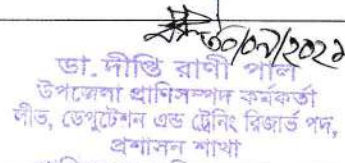 ৩০/০৭/২০২১
ডা. দীপ্তি রাণী পাল
উপজেলা প্রাণিসম্পদ কর্মকর্তা
লীভ, ডেপুটেশন এন্ড ট্রেনিং রিজার্ভ পদ,
প্রশাসন শাখা